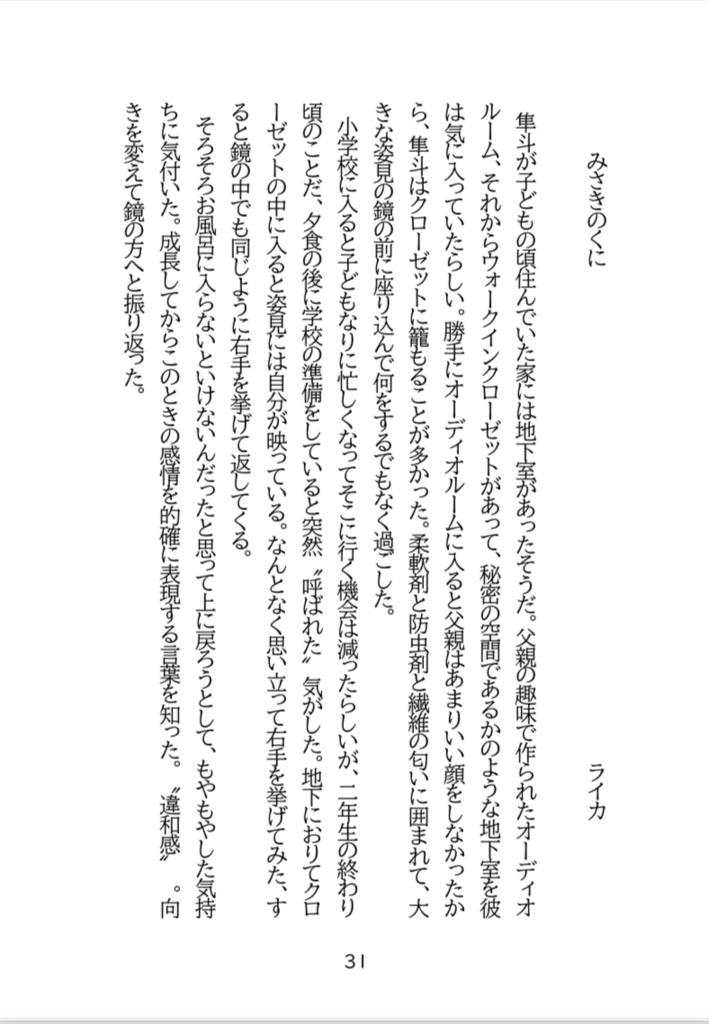 みさきのくに　ライカ
隼斗が子どもの頃住んでいた家には地下室があったそうだ。父親の趣味で作られたオーディオ
ルーム、それからウォークインクローゼットがあって、秘密の空間であるかのような地下室を彼
は気に入っていたらしい。勝手にオーディオルームに入ると父親はあまりいい顔をしなかったか
ら、隼斗はクローゼットに籠もることが多かった。柔軟剤と防虫剤と繊維の匂いに囲まれて、大
きな姿見の鏡の前に座り込んで何をするでもなく過ごした。
小学校に入ると子どもなりに忙しくなってそこに行く機会は減ったらしいが、二年生の終わり
頃のことだ、夕食の後に学校の準備をしていると突然〝呼ばれた〟気がした。地下におりてクロ
ーゼットの中に入ると姿見には自分が映っている。なんとなく思い立って右手を挙げてみた、す
ると鏡の中でも同じように右手を挙げて返してくる。
そろそろお風呂に入らないといけないんだったと思って上に戻ろうとして、もやもやした気持
ちに気付いた。成長してからこのときの感情を的確に表現する言葉を知った。〝違和感〟。向
きを変えて鏡の方へと振り返った。
31